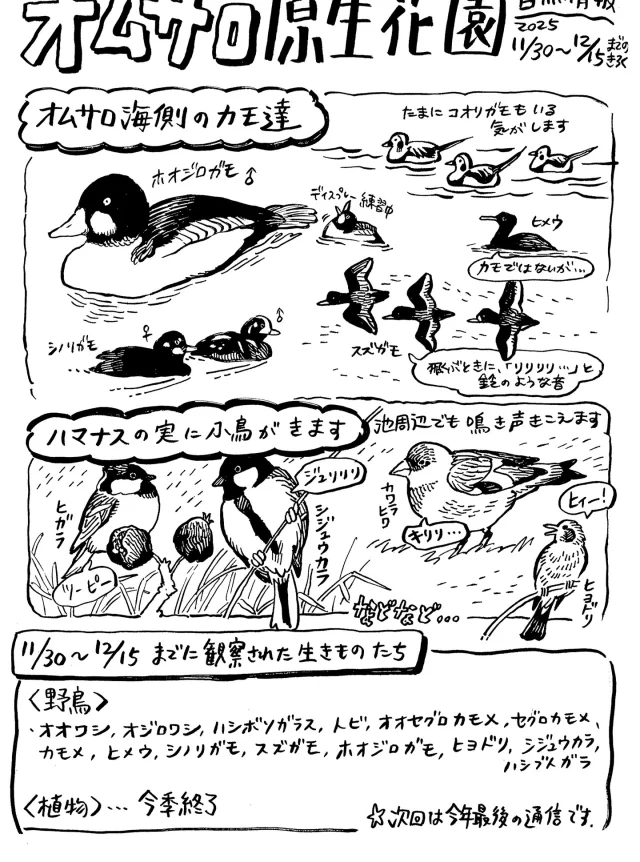 オムサロ原生花園
自然情報
2025
11/30〜12/15までのきろく
オムサロ海側のカモ達
たまにコオリガモもいる
気がします
ホオジロガモ♂
ディスプレー練習中
ヒメウ
カモではないが…
シノリガモ
♀
♂
スズガモ
飛ぶときに、「リリリリ…」と
鈴のような音
ハマナスの実に小鳥がきます
池周辺でも鳴き声きこえます
ヒガラ
ツーピー
シジュウカラ
ジュリリリ
カワラヒワ
キリリ…
ヒィー!
ヒヨドリ
などなど…
11/30〜12/15までに観察された生きものたち
〈野鳥〉
・オオワシ, オジロワシ, ハシボソガラス, トビ, オオセグロカモメ, セグロカモメ,
カモメ, ヒメウ, シノリガモ, スズガモ, ホオジロガモ, ヒヨドリ, シジュウカラ,
ハシブトガラ
〈植物〉… 今季終了
☆次回は今年最後の通信です.